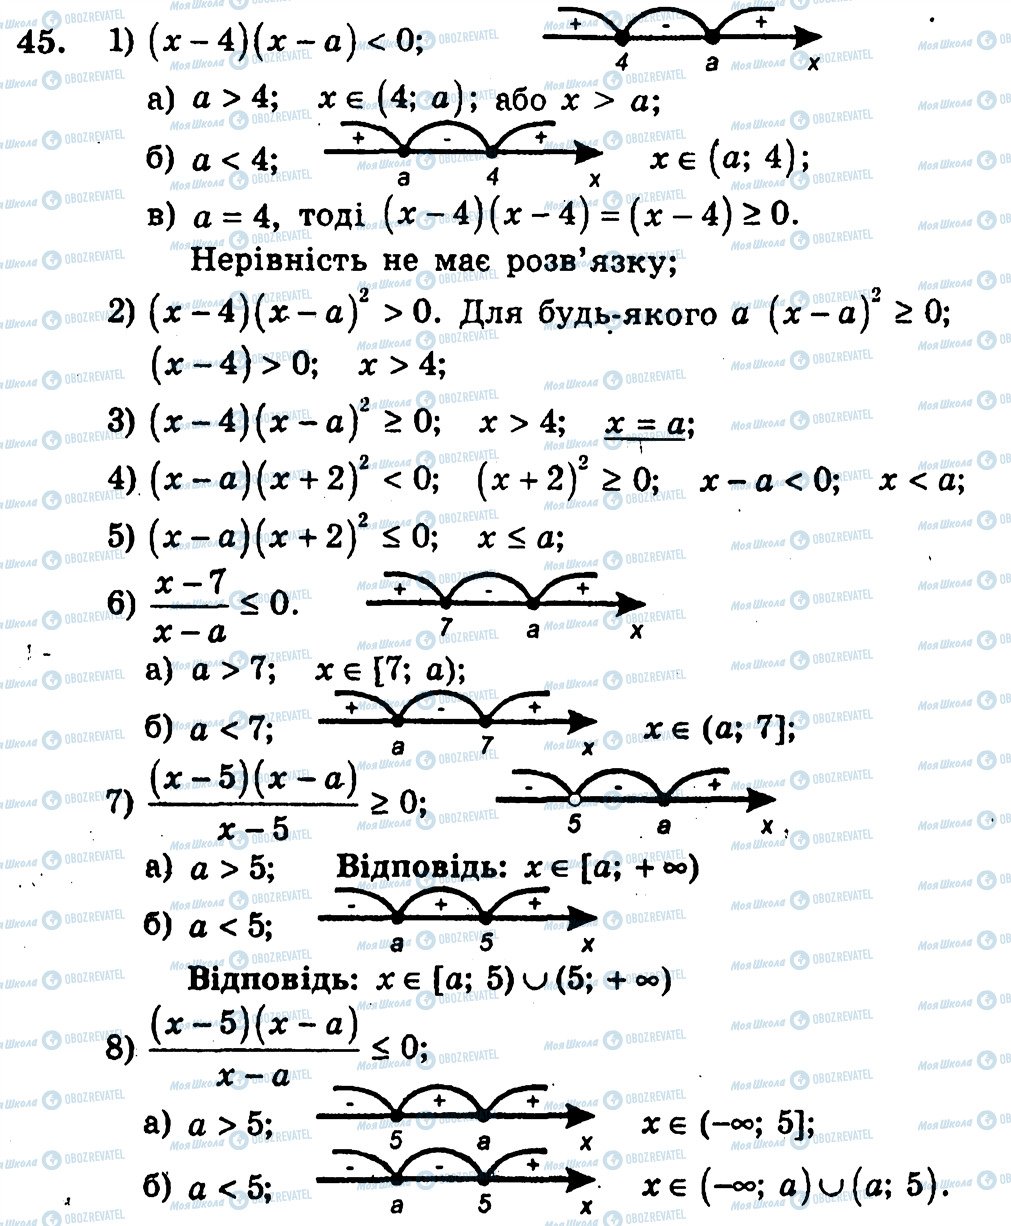 45. 1) (x − 4)(x − a) < 0; + - + 4 a x
а) a > 4; x ∈ (4; a); або x > a;
б) a < 4; + - + a 4 x x ∈ (a; 4);
в) a = 4, тоді (x − 4)(x − 4) = (x − 4) ≥ 0.
Нерівність не має розв’язку;
2) (x − 4)(x − a)² > 0. Для будь-якого a (x − a)² ≥ 0;
(x − 4) > 0; x > 4;
3) (x − 4)(x − a)² ≥ 0; x > 4; x = a;
4) (x − a)(x + 2)² < 0; (x + 2)² ≥ 0; x − a < 0; x < a;
5) (x − a)(x + 2)² ≤ 0; x ≤ a;
6) (x − 7)/(x − a) ≤ 0. + - + 7 a x
а) a > 7; x ∈ [7; a);
б) a < 7; + - + a 7 x x ∈ (a; 7];
7) (x − 5)(x − a)/(x − 5) ≥ 0; - - + 5 a x
а) a > 5; Відповідь: x ∈ [a; + ∞)
б) a < 5; - + + a 5 x
Відповідь: x ∈ [a; 5) ∪ (5; + ∞)
8) (x − 5)(x − a)/(x − a) ≤ 0;
а) a > 5; - + + 5 a x x ∈ (−∞; 5];
б) a < 5; - - + a 5 x x ∈ (−∞; a) ∪ (a; 5).
Моя Школа OBOZREVATEL